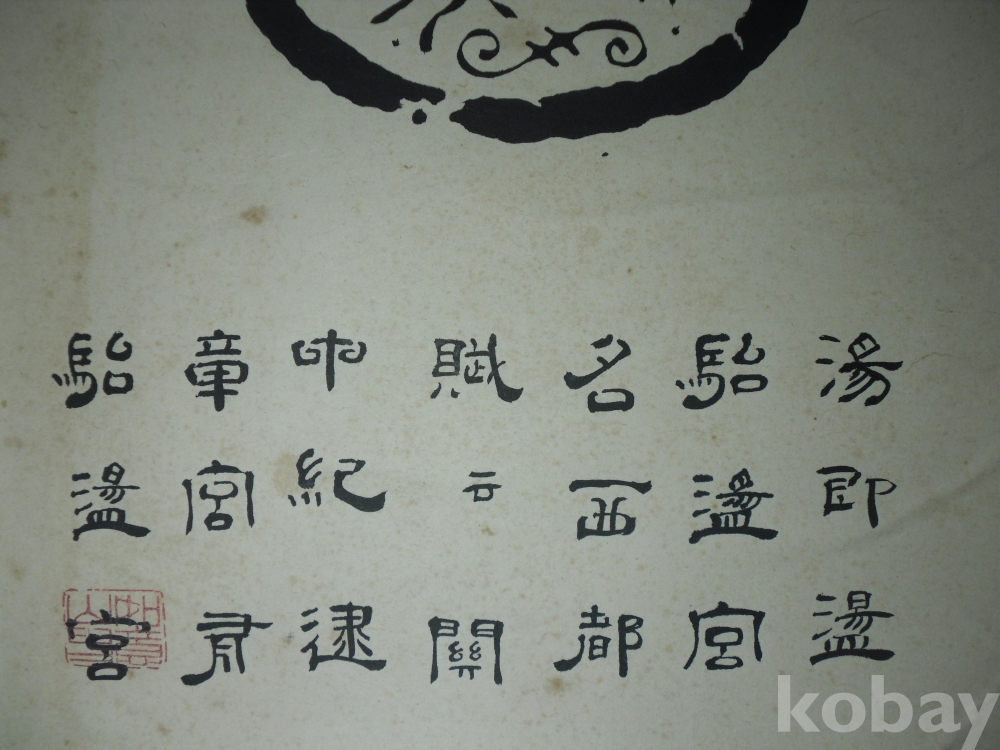 湯即盪
駘盪宮
名西都
賦云關
中紀建
章宮有
駘盪宮
kobay